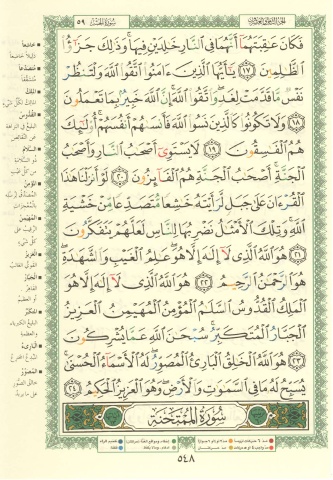 الجزء الثامن والعشرون
سورة الحشر ٥٩
فَكَانَ عَٰقِبَتَهُمَآ أَنَّهُمَا فِى ٱلنَّارِ خَٰلِدَيْنِ فِيهَا ۚ وَذَٰلِكَ جَزَٰٓؤُا۟
ٱلظَّٰلِمِينَ ١٧ يَٰٓأَيُّهَا ٱلَّذِينَ ءَامَنُوا۟ ٱتَّقُوا۟ ٱللَّهَ وَلْتَنظُرْ
نَفْسٌ مَّا قَدَّمَتْ لِغَدٍ ۖ وَٱتَّقُوا۟ ٱللَّهَ ۚ إِنَّ ٱللَّهَ خَبِيرٌۢ بِمَا تَعْمَلُونَ
١٨ وَلَا تَكُونُوا۟ كَٱلَّذِينَ نَسُوا۟ ٱللَّهَ فَأَنسَىٰهُمْ أَنفُسَهُمْ ۚ أُو۟لَٰٓئِكَ
هُمُ ٱلْفَٰسِقُونَ ١٩ لَا يَسْتَوِىٓ أَصْحَٰبُ ٱلنَّارِ وَأَصْحَٰبُ
ٱلْجَنَّةِ ۚ أَصْحَٰبُ ٱلْجَنَّةِ هُمُ ٱلْفَآئِزُونَ ٢٠ لَوْ أَنزَلْنَا هَٰذَا
ٱلْقُرْءَانَ عَلَىٰ جَبَلٍ لَّرَأَيْتَهُۥ خَٰشِعًا مُّتَصَدِّعًا مِّنْ خَشْيَةِ
ٱللَّهِ ۚ وَتِلْكَ ٱلْأَمْثَٰلُ نَضْرِبُهَا لِلنَّاسِ لَعَلَّهُمْ يَتَفَكَّرُونَ
٢١ هُوَ ٱللَّهُ ٱلَّذِى لَآ إِلَٰهَ إِلَّا هُوَ ۖ عَٰلِمُ ٱلْغَيْبِ وَٱلشَّهَٰدَةِ ۖ
هُوَ ٱلرَّحْمَٰنُ ٱلرَّحِيمُ ٢٢ هُوَ ٱللَّهُ ٱلَّذِى لَآ إِلَٰهَ إِلَّا هُوَ
ٱلْمَلِكُ ٱلْقُدُّوسُ ٱلسَّلَٰمُ ٱلْمُؤْمِنُ ٱلْمُهَيْمِنُ ٱلْعَزِيزُ
ٱلْجَبَّارُ ٱلْمُتَكَبِّرُ ۚ سُبْحَٰنَ ٱللَّهِ عَمَّا يُشْرِكُونَ
٢٣ هُوَ ٱللَّهُ ٱلْخَٰلِقُ ٱلْبَارِئُ ٱلْمُصَوِّرُ ۖ لَهُ ٱلْأَسْمَآءُ ٱلْحُسْنَىٰ ۚ
يُسَبِّحُ لَهُۥ مَا فِى ٱلسَّمَٰوَٰتِ وَٱلْأَرْضِ ۖ وَهُوَ ٱلْعَزِيزُ ٱلْحَكِيمُ ٢٤
سُورَةُ ٱلْمُمْتَحَنَةِ
٥٤٨
خاشعا
متصدعا
الملك
القدوس
السلام
المؤمن
المهيمن
العزيز
الجبار
المتكبر
البارئ
المصور